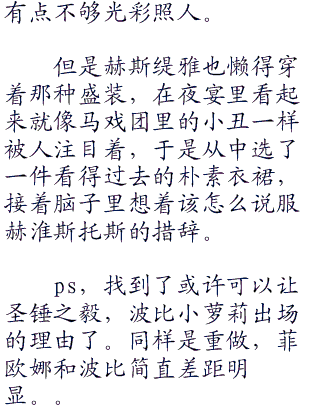 有点不够光彩照人。
但是赫斯缇雅也懒得穿
着那种盛装，在夜宴里看起
来就像马戏团里的小丑一样
被人注目着，于是从中选了
一件看得过去的朴素衣裙，
接着脑子里想着该怎么说服
赫淮斯托斯的措辞。
ps，找到了或许可以让
圣锤之毅，波比小萝莉出场
的理由了。同样是重做，菲
欧娜和波比简直差距明
显。。